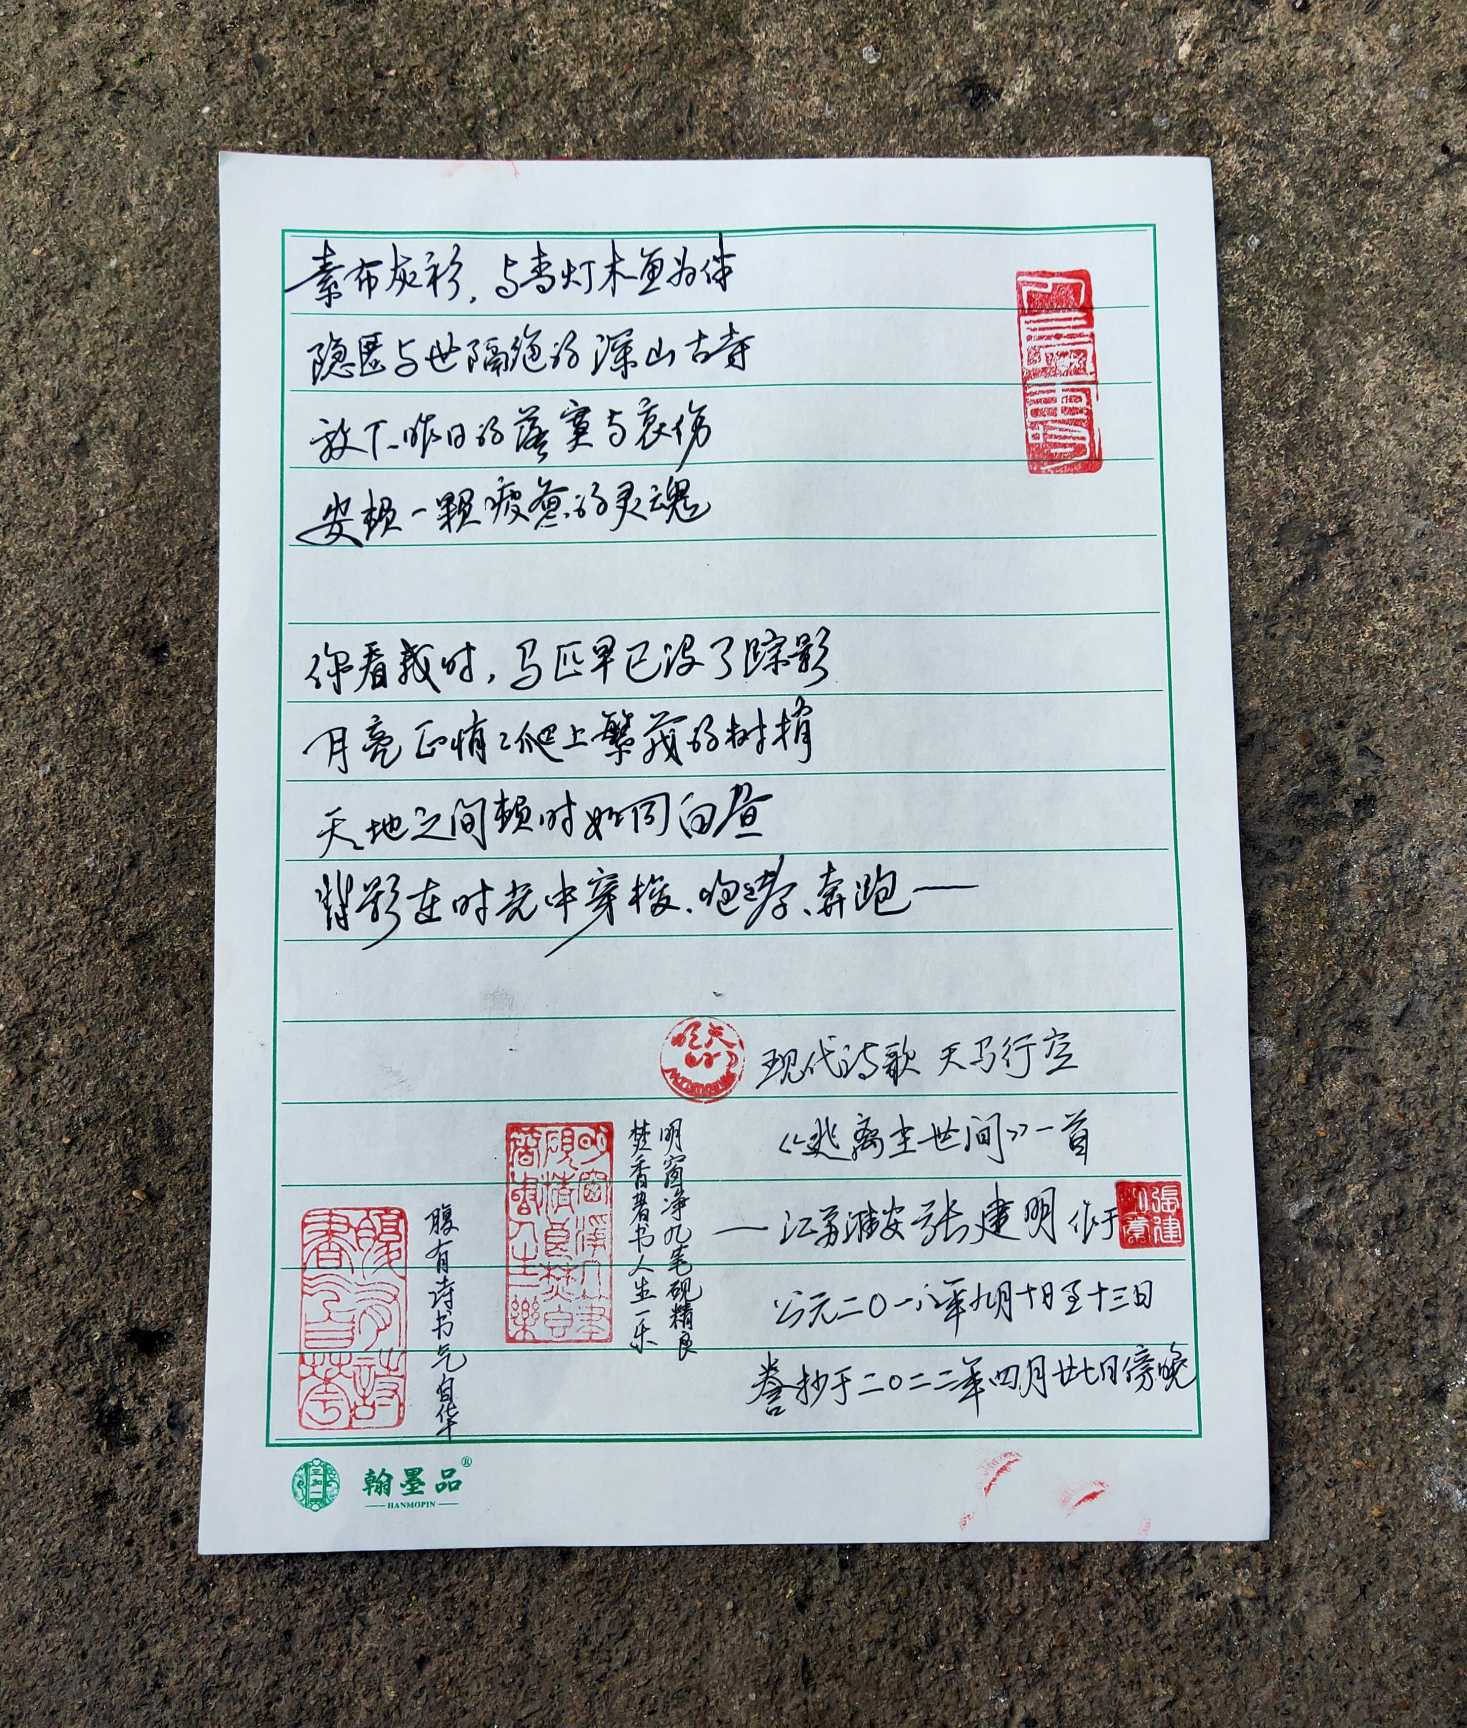 素布灰衫，与青灯木鱼为伴
隐匿与世隔绝的深山古寺
放下昨日的落寞与哀伤
安顿一颗疲惫的灵魂
你看我时，马匹早已没了踪影
月亮正悄悄爬上繁茂的树梢
天地之间顿时如同白昼
背影在时光中穿梭、咆哮、奔跑——
现代诗歌 天马行空
《逃离尘世间》一首
——江苏淮安张建明作于
公元二〇一八年九月十日至十三日
誊抄于二〇二二年四月廿七日傍晚
明窗净几笔砚精良
焚香著书人生一乐
腹有诗书气自华
翰墨品®
HANMOPIN